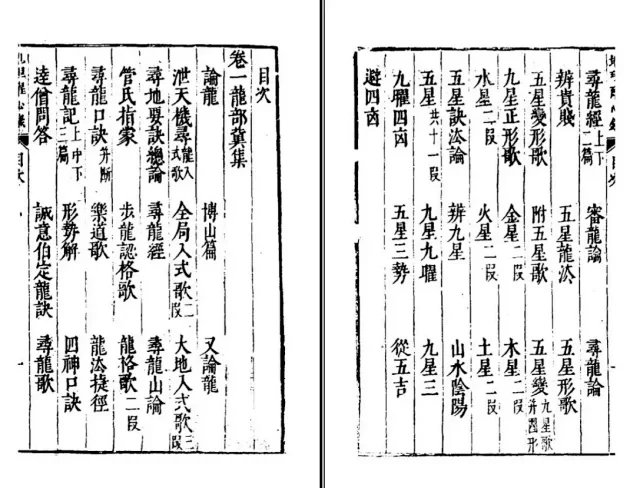 目次
卷一龍部彙集
論龍 博山篇 又論龍
泄天機尋龍入式歌 全局入式歌二段 大地入式歌三段
尋地要訣總論 尋龍經 尋龍山論
管氏指蒙 步龍認格歌 龍格歌二段
尋龍口訣并斷 樂道歌 龍法捷徑
尋龍記上中下三篇 形勢解 四神口訣
達僧問答 誠意伯定龍訣 尋龍歌
目次
目次
尋龍經上下二篇 審龍論 尋龍論
辨貴賤 五星龍法 五星形歌
五星變形歌 附五星歌 五星變九星歌并圖形
九星正形歌 金星二段 木星二段
水星二段 火星二段 土星二段
五星訣法論 辨九星 山水陰陽
五星共十一段 九星九曜 九星三
九曜四凶 五星三勢 從五吉
避四凶